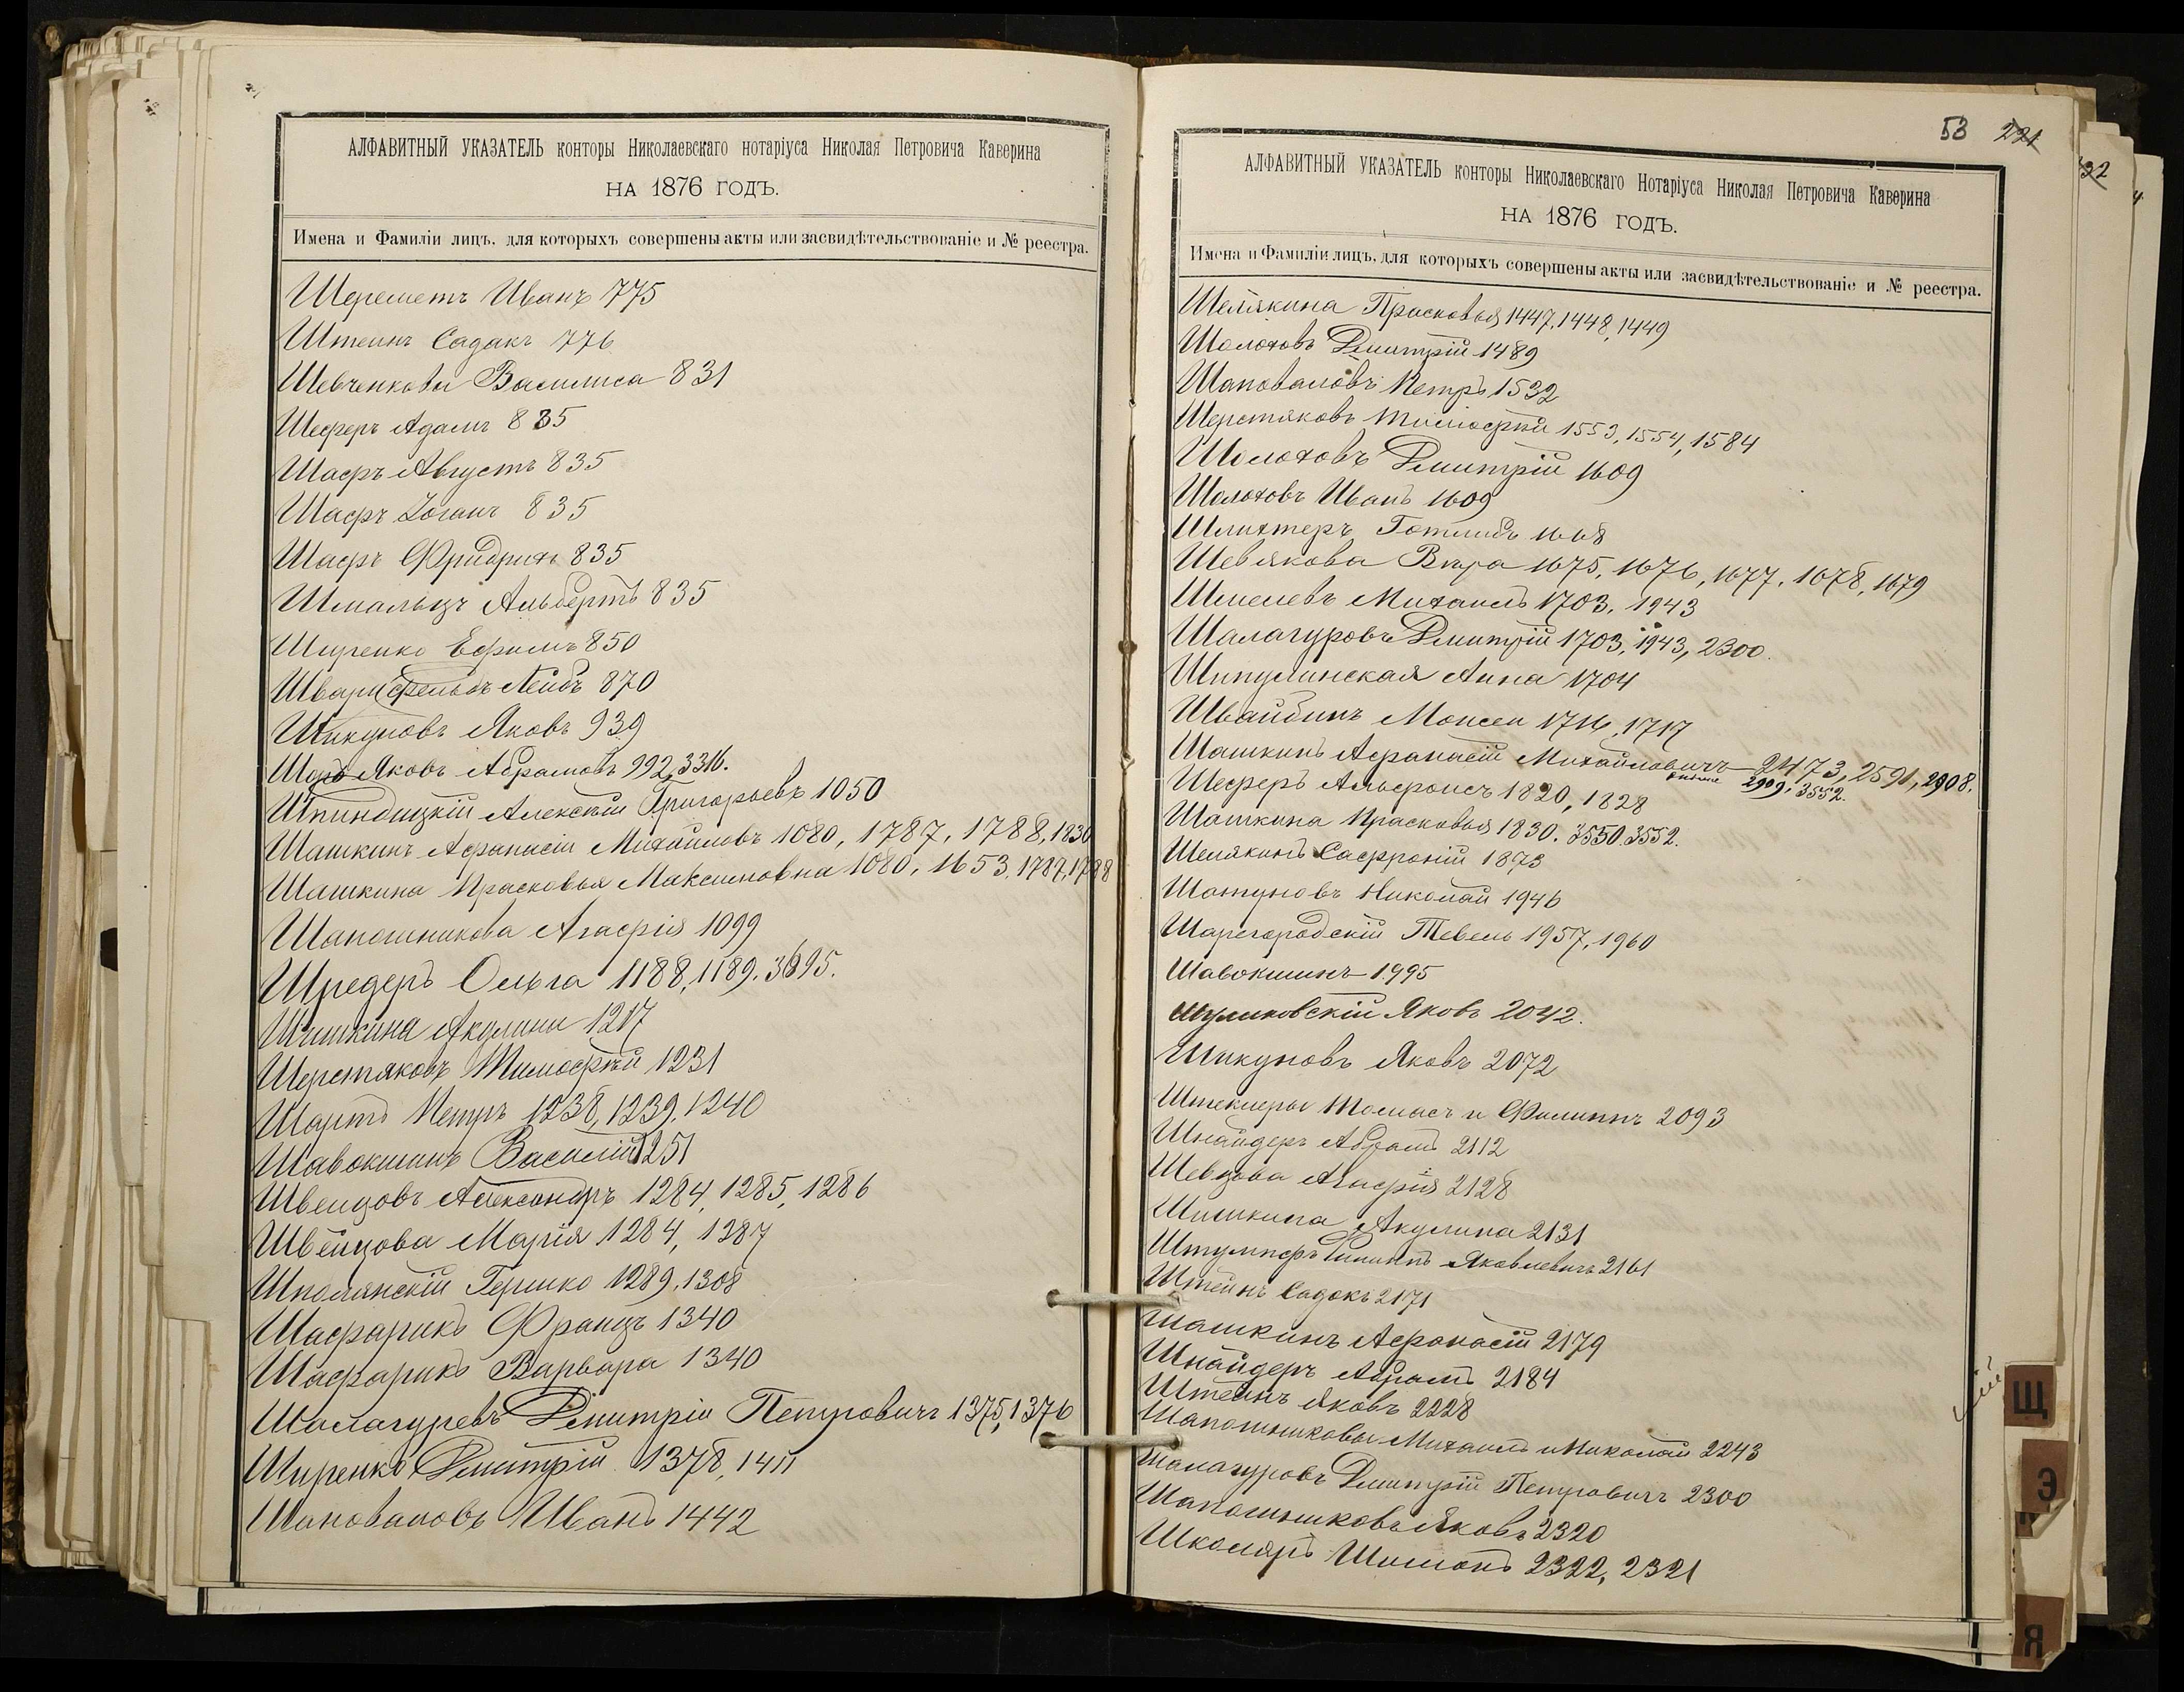 АЛФАВИТНЫЙ УКАЗАТЕЛЬ конторы Николаевскаго нотаріуса Николая Петровича Каверина
НА 1876 ГОДЪ.
Имена и Фамиліи лицъ, для которыхъ совершены акты или засвидѣтельствованіе и № реестра.
Шереметъ Иванъ 775
Штеинъ Садакъ 776
Шевченкова Василиса 831
Шеферъ Адамъ 835
Шафъ Августъ 835
Шафъ Іоганъ 835
Шафъ Фридрихъ 835
Шмальцъ Альбертъ 835
Щуренко Ефимъ 850
Шварцфельдъ Лейбъ 870
Шикуновъ Яковъ 939
Шоръ Яковъ Абрамовъ 992, 3316.
Шпиндицкій Алексѣй Григорьевъ 1050
Шашкинъ Афанасіи Михаиловъ 1080, 1787, 1788, 1830
Шашкина Прасковья Максимовна 1080, 1653, 1787, 1788
Шапошникова Агафія 1099
Шредеръ Ольга 1188, 1189, 3695.
Шишкина Акулина 1217
Шерстяковъ Тимофѣй 1231
Шартъ Петръ 1238, 1239, 1240
Шавокшинъ Василій 1251
Швецовъ Александръ 1284, 1285, 1286
Швейцова Марія 1284, 1287
Шполянскій Гершко 1289, 1308
Шафарикъ Францъ 1340
Шафарикъ Варвара 1340
Шалагуревъ Дмитріи Петровичъ 1375, 1376
Шуренко Дмитрій 1378, 1411
Шаповаловъ Иванъ 1442
53 221
АЛФАВИТНЫЙ УКАЗАТЕЛЬ конторы Николаевскаго Нотаріуса Николая Петровича Каверина
НА 1876 ГОДЪ.
Имена и Фамиліи лицъ, для которыхъ совершены акты или засвидѣтельствованіе и № реестра.
Шелякина Прасковья 1447, 1448, 1449
Шолоховъ Дмитрій 1489
Шаповаловъ Петръ 1532
Шерстяковъ Тимофѣй 1553, 1554, 1584
Шолоховъ Дмитрій 1609
Шолоховъ Иванъ 1609
Шлихтеръ Готлибъ 1668
Шевлякова Вѣра 1675, 1676, 1677, 1678, 1679
Шмелевъ Михаилъ 1703, 1943
Шалагуровъ Дмитрій 1703, 1943, 2300.
Шипулинская Анна 1704
Швайбинъ Моисеи 1716, 1717
Шашкинъ Афанасій Михайловичъ 2473, 2591, 2908.
2909, 3552.
Шеферъ Альфонсъ 1820, 1828
Шашкина Прасковья 1830. 3550. 3552.
Шелякинъ Сафроній 1873
Шотуновъ Николай 1946
Шарегородскій Тевель 1957, 1960
Шавокшинъ 1995
Шулиховскій Яковъ 2042.
Шикуновъ Яковъ 2072
Штеклеры Томасъ и Филиппъ 2093
Шнайдеръ Абрамъ 2112
Шевцова Агафія 2128
Шишкина Акулина 2131
Штумпфъ Филиппъ Яковлевичъ 2161
Штейнъ Садокъ 2171
Шашкинъ Афонасій 2179
Шнайдеръ Абрамъ 2184
Штеинъ Яковъ 2228
Шапошниковы Михаилъ и Николай 2243
Шалагуровъ Дмитрій Петровичъ 2300
Шапошниковъ Яковъ 2320
Школяръ Шимонъ 2322, 2321
Щ
Э
Я